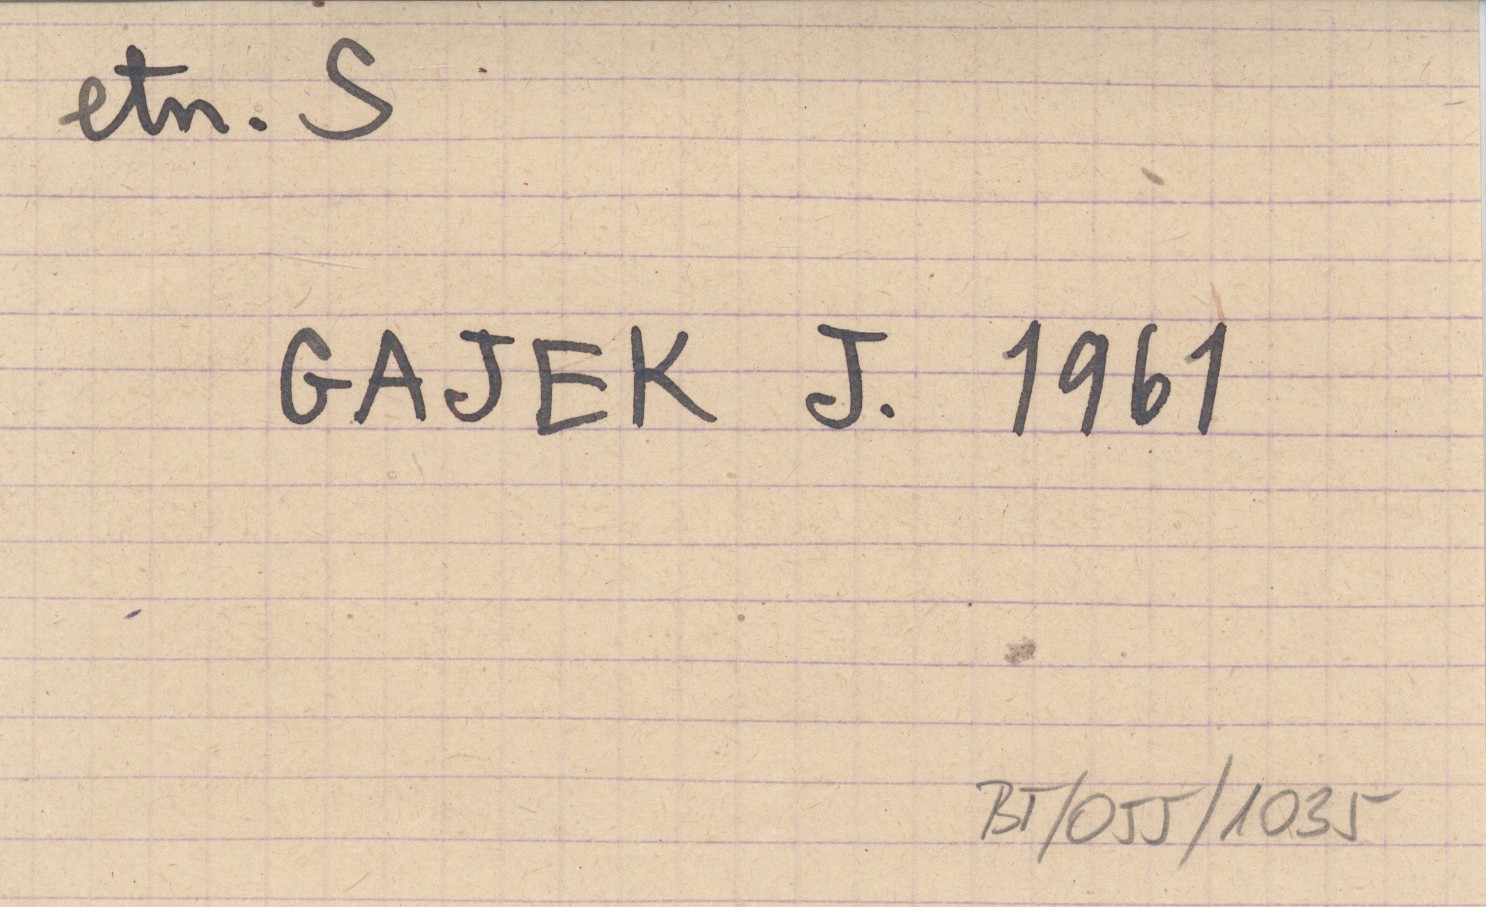 etn. S
GAJEK J. 1961
BT/055/1035